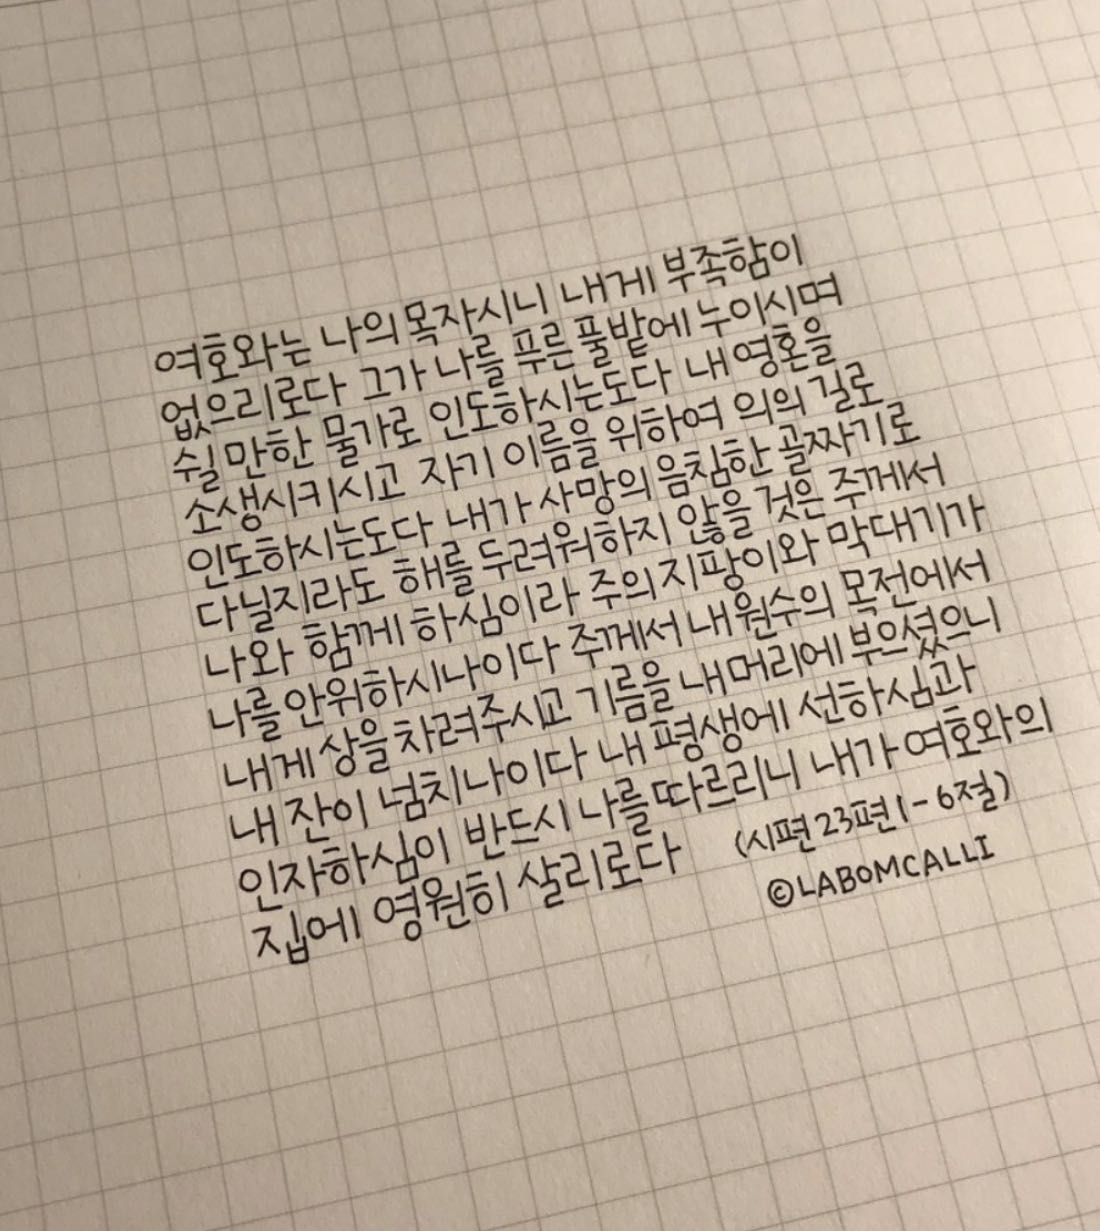 여호와는 나의 목자시니 내게 부족함이
없으리로다 그가 나를 푸른 풀밭에 누이시며
쉴 만한 물가로 인도하시는도다 내 영혼을
소생시키시고 자기 이름을 위하여 의의 길로
인도하시는도다 내가 사망의 음침한 골짜기로
다닐지라도 해를 두려워하지 않을 것은 주께서
나와 함께 하심이라 주의 지팡이와 막대기가
나를 안위하시나이다 주께서 내 원수의 목전에서
내게 상을 차려주시고 기름을 내 머리에 부으셨으니
내 잔이 넘치나이다 내 평생에 선하심과
인자하심이 반드시 나를 따르리니 내가 여호와의
집에 영원히 살리로다 (시편 23편 1-6절)
©LABOMCALLI